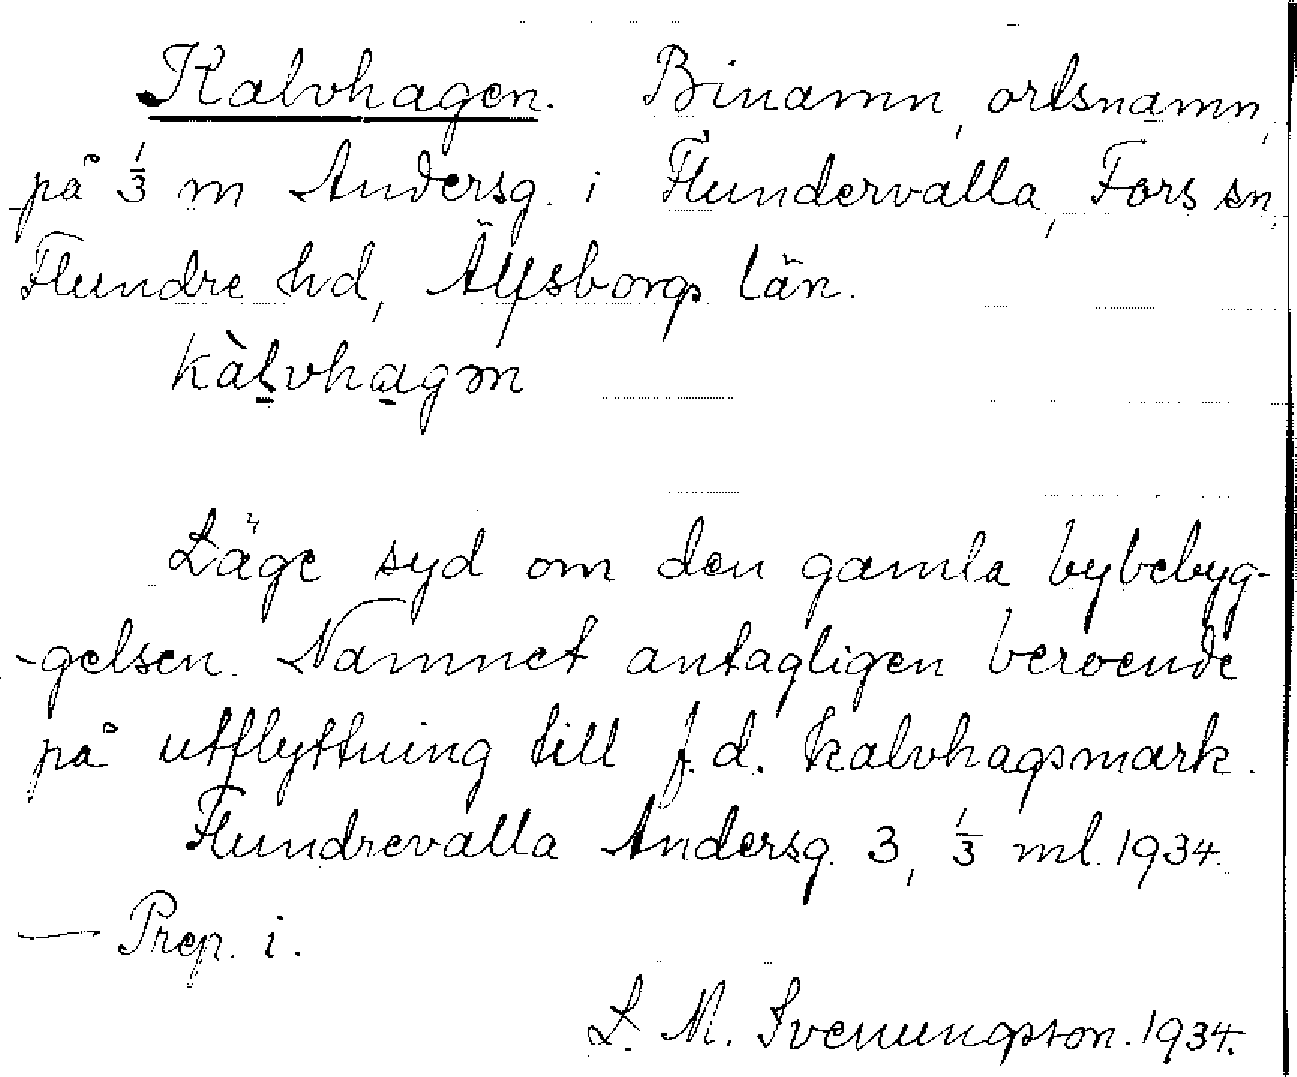 Kalvhagen. Binamn, ortsnamn,
på 1/3 m Andersg. i Flundervalla, Fors sn,
Flundre hd, Älfsborgs län.
kàl̠vha̠gən
Läge syd om den gamla bybebyg-
-gelsen. Namnet antagligen beroende
på utflyttning till f.d. kalvhagsmark.
Flundrevalla Andersg. 3, 1/3 ml. 1934.
— Prep. i.
L. M. Svenungsson. 1934.